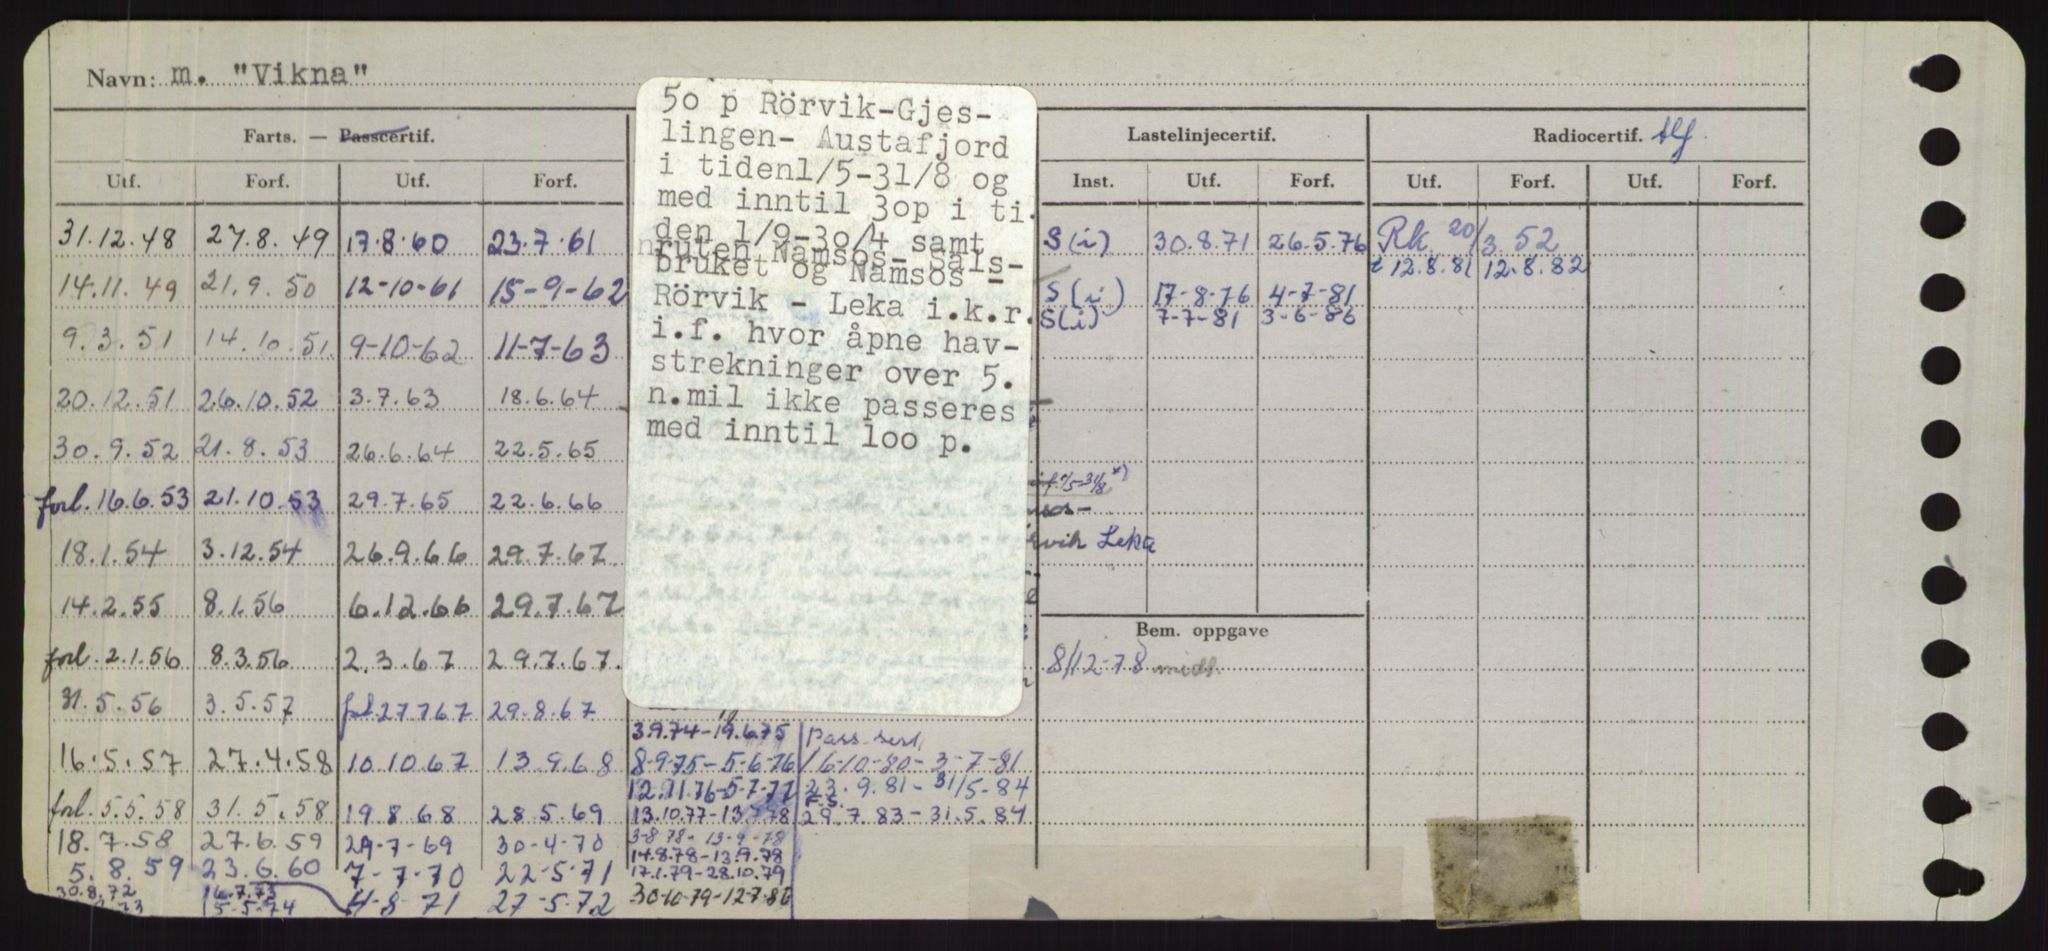 Navn: m. "Vikna"
Farts. — Passcertif.
Utf. Forf. Utf. Forf.
31.12.48 27.8.49 17.8.60 23.7.61
14.11.49 21.9.50 12-10-61 15-9-62
9.3.51 14.10.51 9-10-62 11-7-63
20.12.51 26.10.52 3.7.63 18.6.64
30.9.52 21.8.53 26.6.64 22.5.65
forl. 16.6.53 21.10.53 29.7.65 22.6.66
18.1.54 3.12.54 26.9.66 29.7.67
14.2.55 8.1.56 6.12.66 29.7.67
forl. 2.1.56 8.3.56 2.3.67 29.7.67.
31.5.56 3.5.57 27767 29.8.67
16.5.57 27.4.58 10.10.67 13.9.68
forl. 5.5.58 31.5.58 19.8.68 28.5.69
18.7.58 27.6.59 29-7-69 30-4-70
5.8.59 23.6.60 7-7-70 22-5-71
30.8.72 16.7.73 4-8-71 27-5-72
73 15-5-74
50 p Rörvik-Gjes-
lingen- Austafjord
i tiden1/5-31/8 og
med inntil 30p i ti
den 1/9-30/4 samt
ruten Namsos- Sals-
bruket og Namsos -
Rörvik - Leka i.k.r.
i.f. hvor åpne hav-
strekninger over 5.
n.mil ikke passeres
med inntil 100 p.
rvik Leka
3.9.74-19.6.75
8-9-75-5-6-76
12.11.76-5-7-77
13.10.77-13.7.78
3-8-78- 13-9-78
14.8.78-13.9.78
17.1.79-28.10.79
30-10-79-12-7-80
Pass. sert
16-10-80-3-7-81
23.9.81-31/5-84
F.S.
29.7.83-31.5.84
Lastelinjecertif.
Inst. Utf. Forf.
S(i) 30.8.71 26.5.76
S(i) 17-8-76 4-7-81
S(i) 7-7-81 3-6-86
Bem. oppgave
8/12-78 midl.
Radiocertif. tlf.
Utf. Forf. Utf. Forf.
Rk. 20/3.52
t 12.8.81 12.8.82